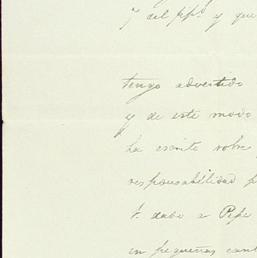 y del ppº y que
tengo advertido
y de este modo
ha escrito sobre
responsabilidad p
V. dabo a Pepe
en pequeñas cant